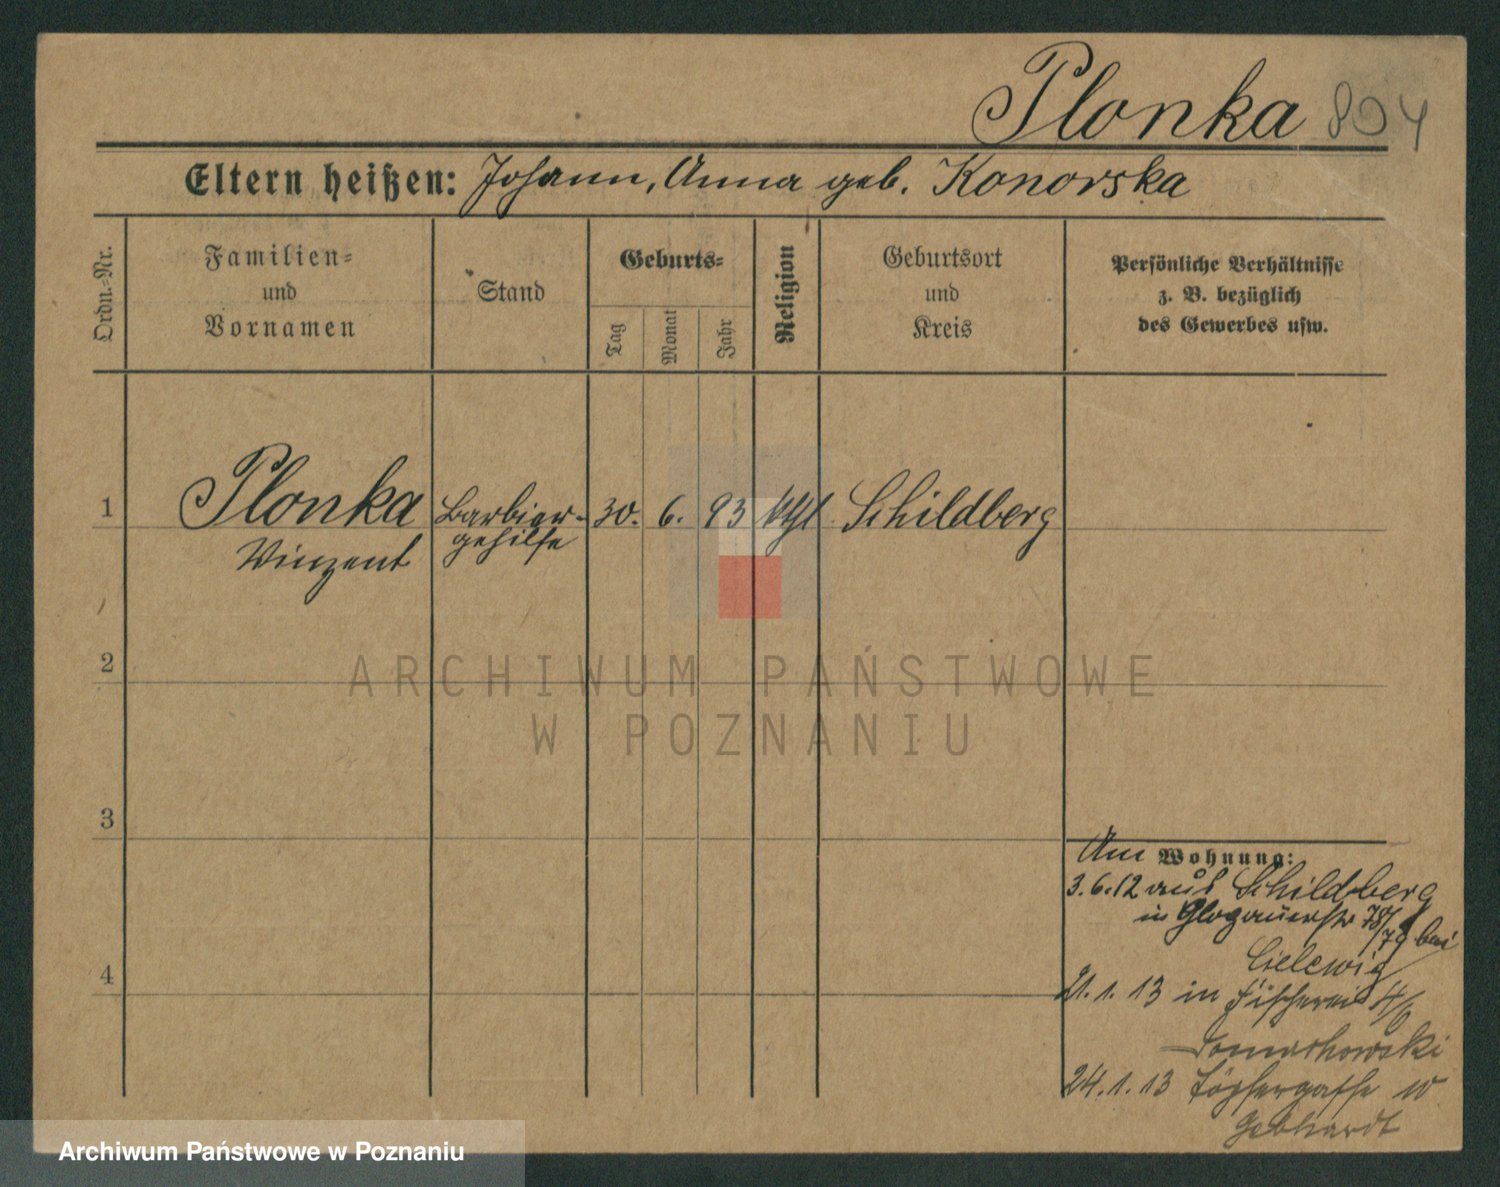 Plonka 804
Eltern heißen: Johann, Anna geb. Konorska
Ordn.-Nr.
Familien-
und
Vornamen
Stand
Geburts-
Tag
Monat
Jahr
Religion
Geburtsort
und
Kreis
Persönliche Verhältnisse
z. B. bezüglich
des Gewerbes usw.
1 Plonka Barbier- 30. 6. 93 kthl Schildberg
Vinzent gehilfe
2
3
4
Am Wohnung:
3.6.12 aus Schildberg
in Glogauerstr 78/
79 bei
Cielewig
21.1.13 in Fischerei 4/6
24.1.13 Töpfergasse
Gebhardt
ARCHIWUM PAŃSTWOWE
W POZNANIU
Archiwum Państwowe w Poznaniu